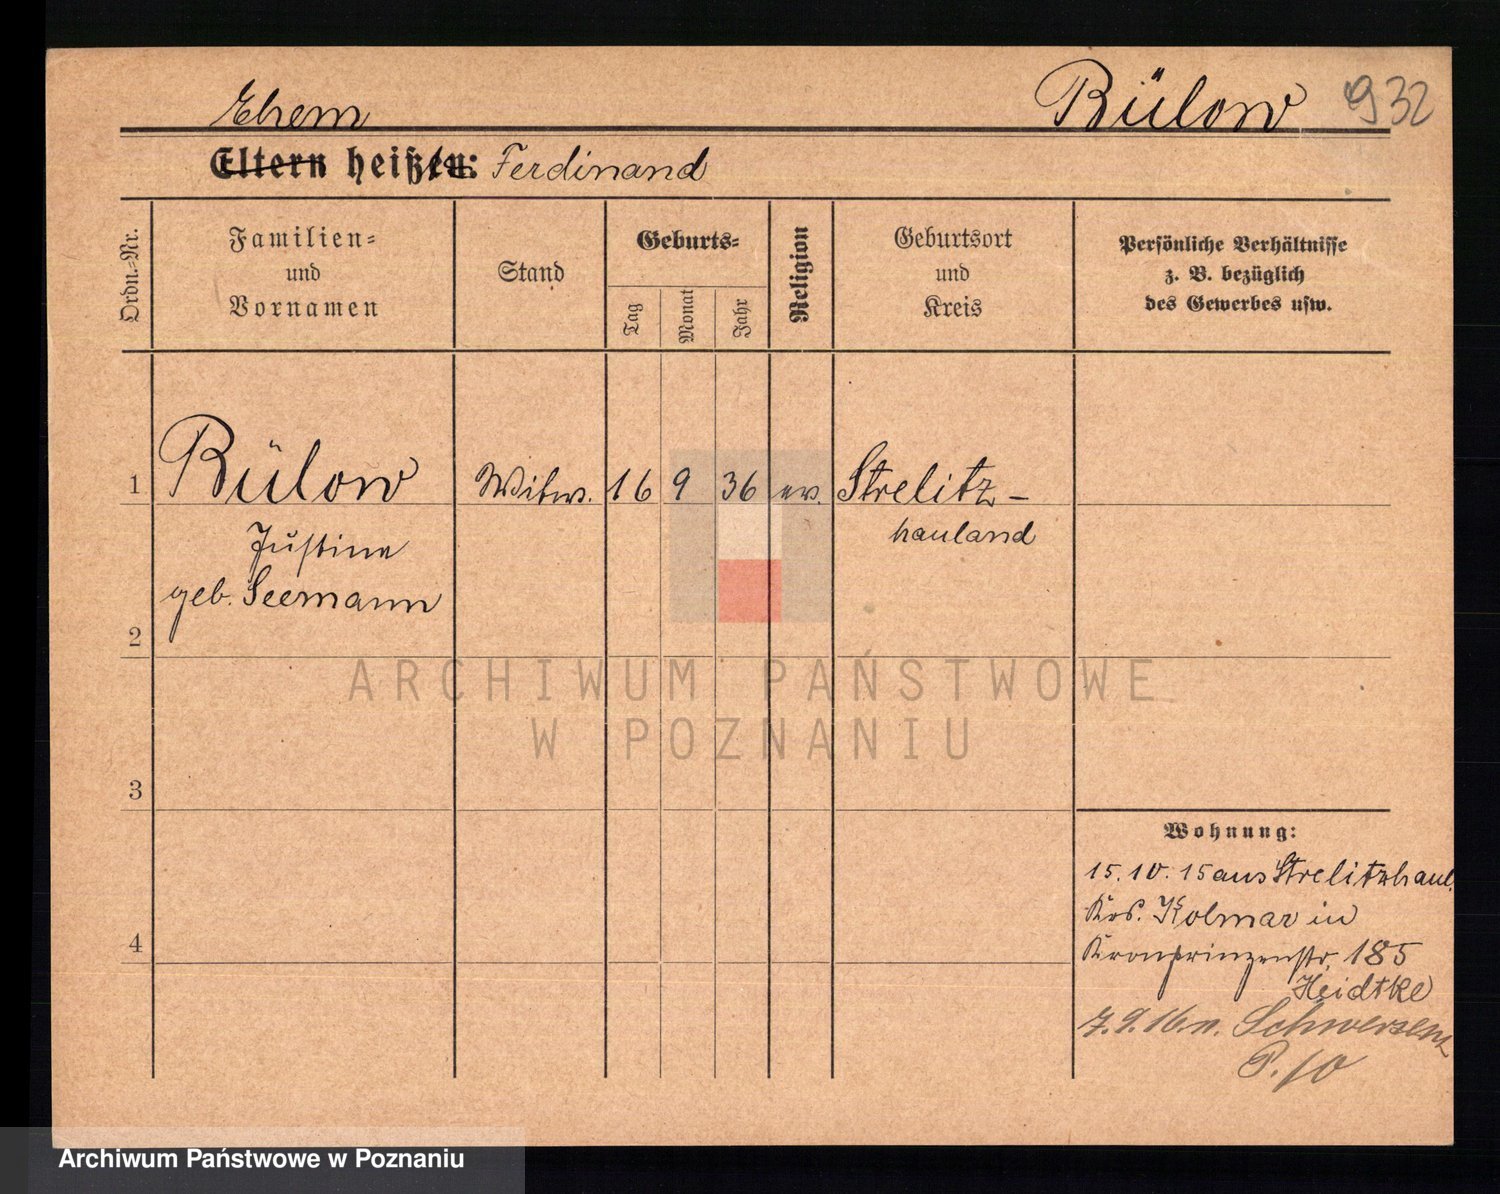 Ehem Bülow 932
Eltern heißen: Ferdinand
Ordn.-Nr.
Familien-
und
Vornamen
Stand
Geburts-
Tag
Monat
Jahr
Religion
Geburtsort
und
Kreis
Persönliche Verhältnisse
z. B. bezüglich
des Gewerbes usw.
1 Bülow Witwe. 16 9 36 ev. Strelitz-
Justine hauland
geb. Seemann
2
ARCHIWUM PAŃSTWOWE
W POZNANIU
3
Wohnung:
15.10.15 aus Strelitzhaul.
Krs. Kolmar in
4
Kronprinzenstr. 185
Heidtke
7.9.16 n. Schwersenz
P. 10
Archiwum Państwowe w Poznaniu